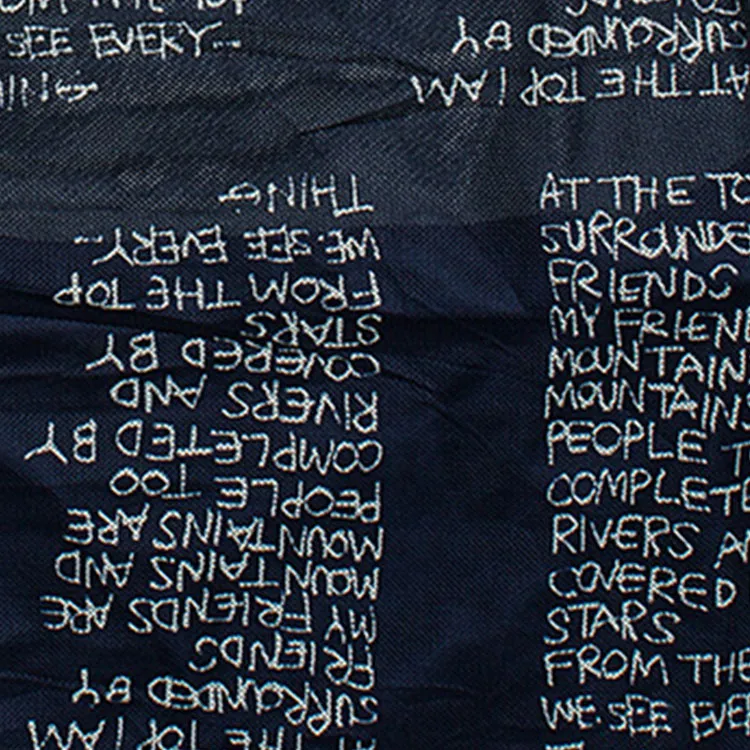 FROM THE TOP
SEE EVERY--
THING
AT THE TOP I AM
SURROUNDED BY
AT THE TOP I AM
SURROUNDED BY
FRIENDS
MY FRIENDS ARE
MOUNTAINS AND
MOUNTAINS ARE
PEOPLE TOO
COMPLETED BY
RIVERS AND
COVERED BY
STARS
FROM THE TOP
WE.SEE EVERY--
THING
AT THE TO
SURROUNDE
FRIENDS
MY FRIEN
MOUNTAIN
MOUNTAIN
PEOPLE T
COMPLETE
RIVERS A
COVERED
STARS
FROM THE
WE.SEE EVE